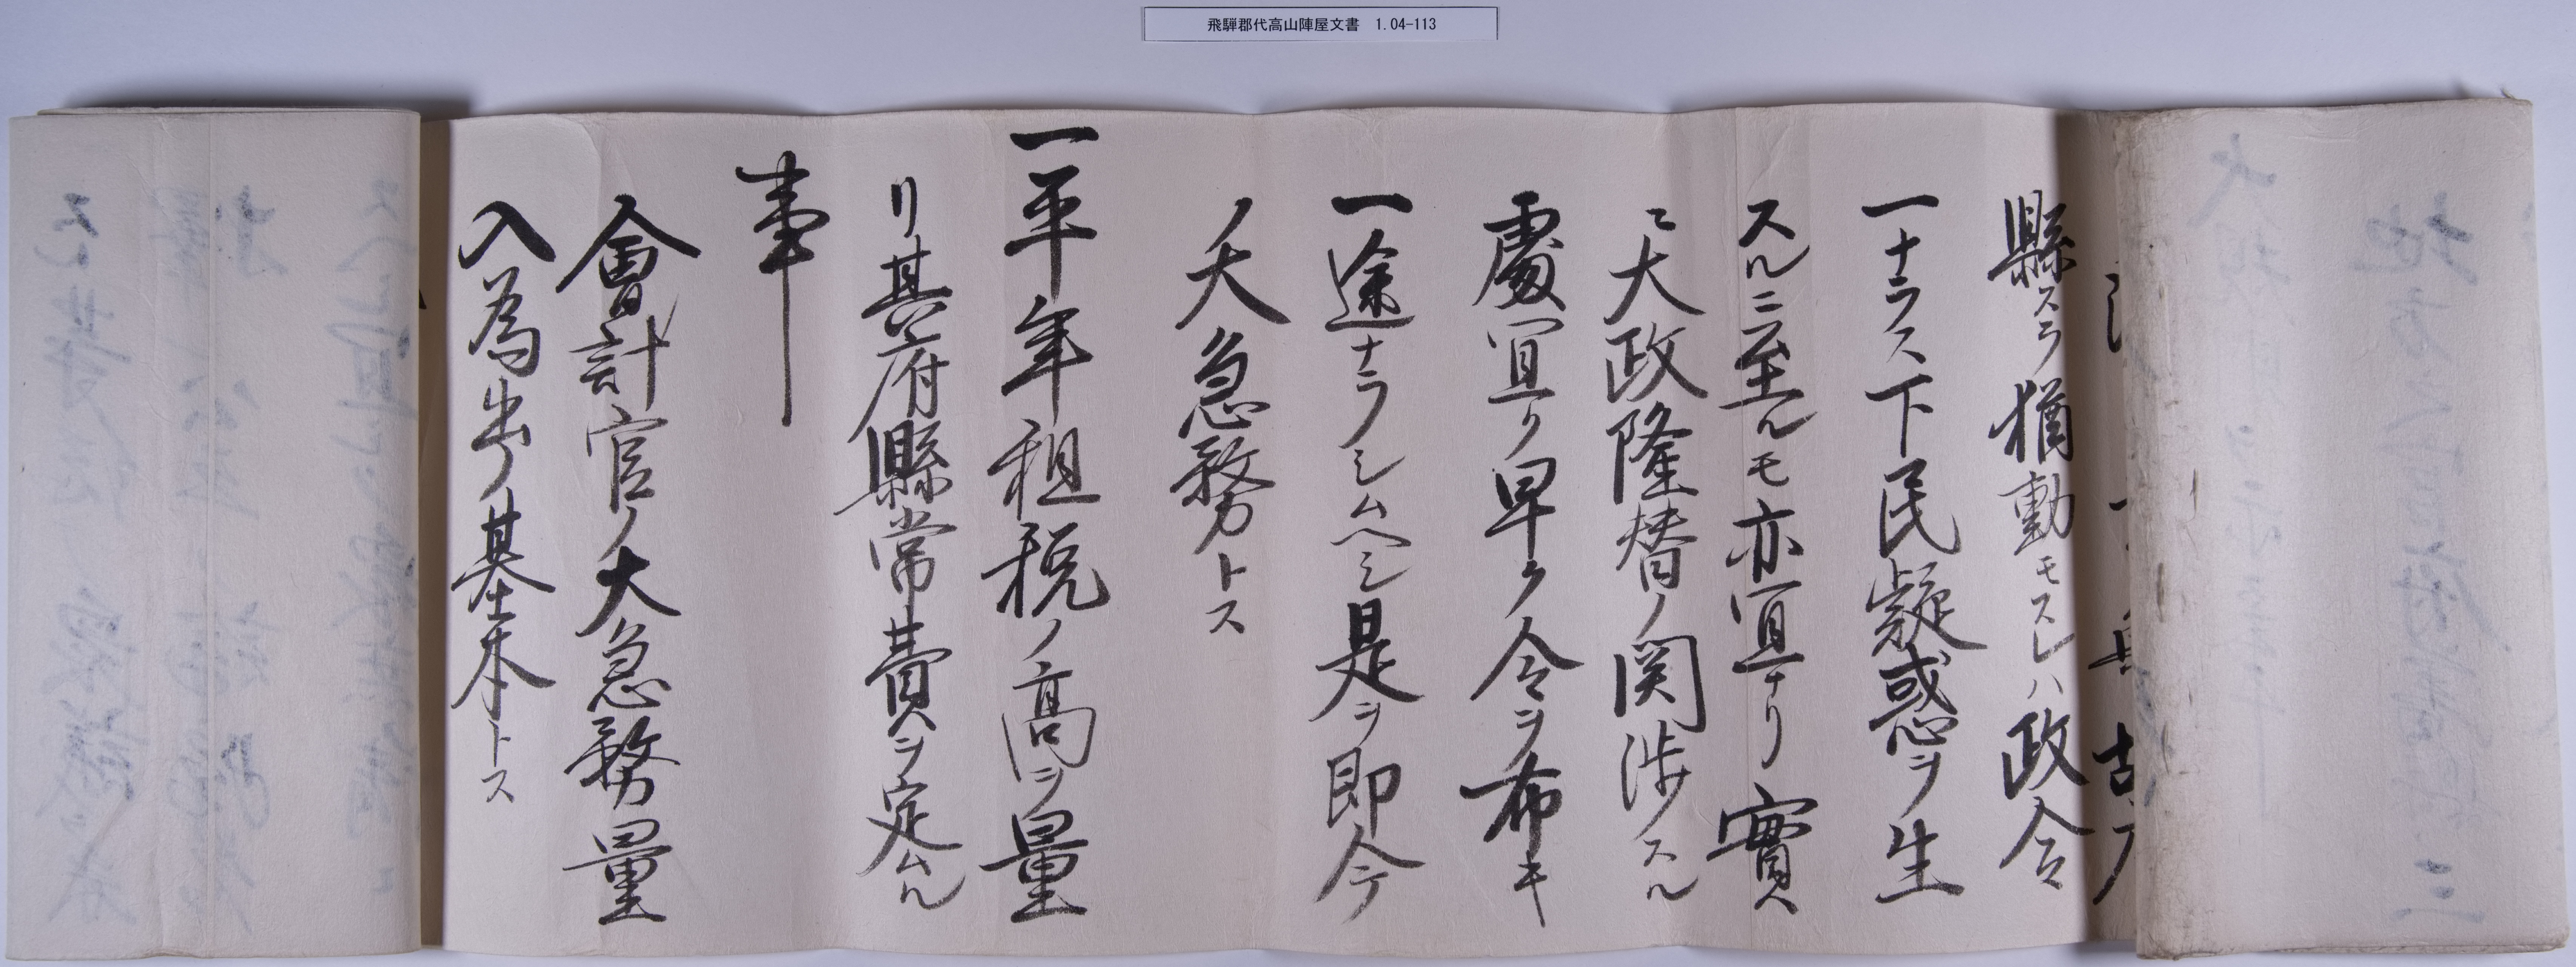 飛騨郡代高山陣屋文書 1.04-113
縣スラ猶動モスレハ政令
一ナラス下民疑惑ヲ生
スルニ至ルモ亦宜ナリ實
ニ大政隆替ノ関渉スル
處宜ク早ク令ヲ布キ
一途ナラシムヘシ是ヲ即今
ノ大急務トス
一平年租税ノ高ヲ量
リ其府縣常費ヲ定ムル
事
會計官ノ大急務量
入為出ノ基本トス